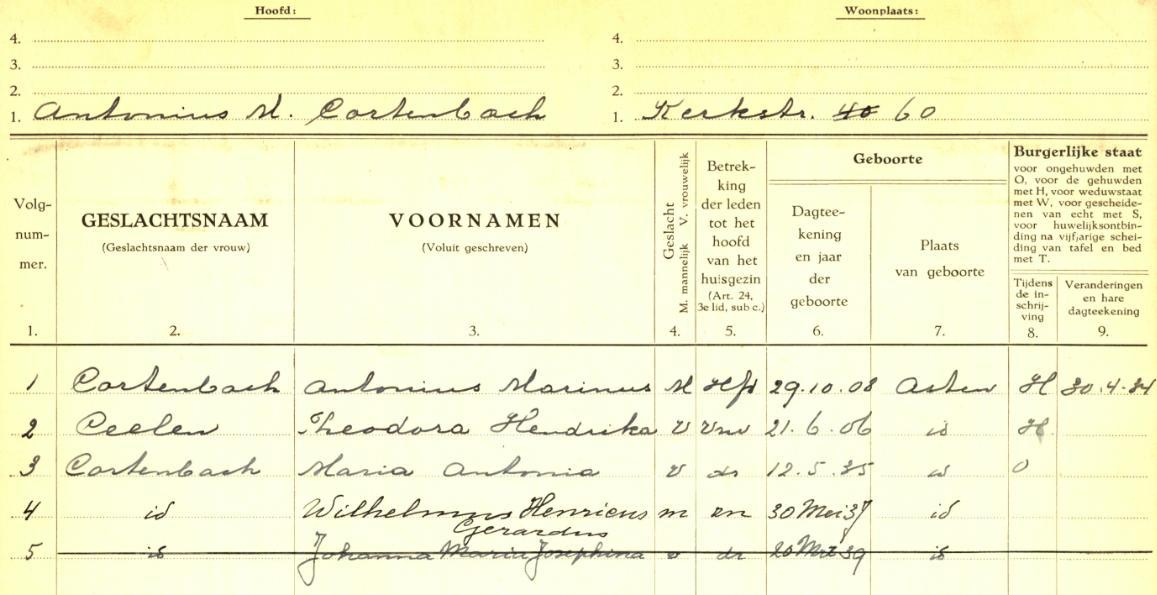 Hoofd: Woonplaats:
4. 4.
3. 3.
2. 2.
1. Antonius M. Cortenbach 1. Kerkstr. 40 60
Volg-
num-
mer.
GESLACHTSNAAM
(Geslachtsnaam der vrouw)
VOORNAMEN
(Voluit geschreven)
Geslacht
M. mannelijk V. vrouwelijk
Betrek-
king
der leden
tot het
hoofd
van het
huisgezin
(Art. 24,
3e lid, sub c.)
Geboorte
Dagtee-
kening
en jaar
der
geboorte
Plaats
van geboorte
Burgerlijke staat
voor ongehuwden met
O, voor de gehuwden
met H, voor weduwstaat
met W, voor gescheide-
nen van echt met S,
voor huwelijksontbin-
ding na vijfjarige schei-
ding van tafel en bed
met T.
Tijdens
de in-
schrij-
ving
Veranderingen
en hare
dagteekening
1. 2. 3. 4. 5. 6. 7. 8. 9.
1 Cortenbach Antonius Marinus M Hfd 29.10.08 Asten H 30.4.34
2 Ceelen Theodora Hendrika V Vrw 21.6.06 id H
3 Cortenbach Maria Antonia V dr 12.5.35 id O
4 id Wilhelmus Henricus m zn 30 Mei 37 id
Gerardus
5 id Johanna Maria Josephina v dr 20 Mrt 39 id